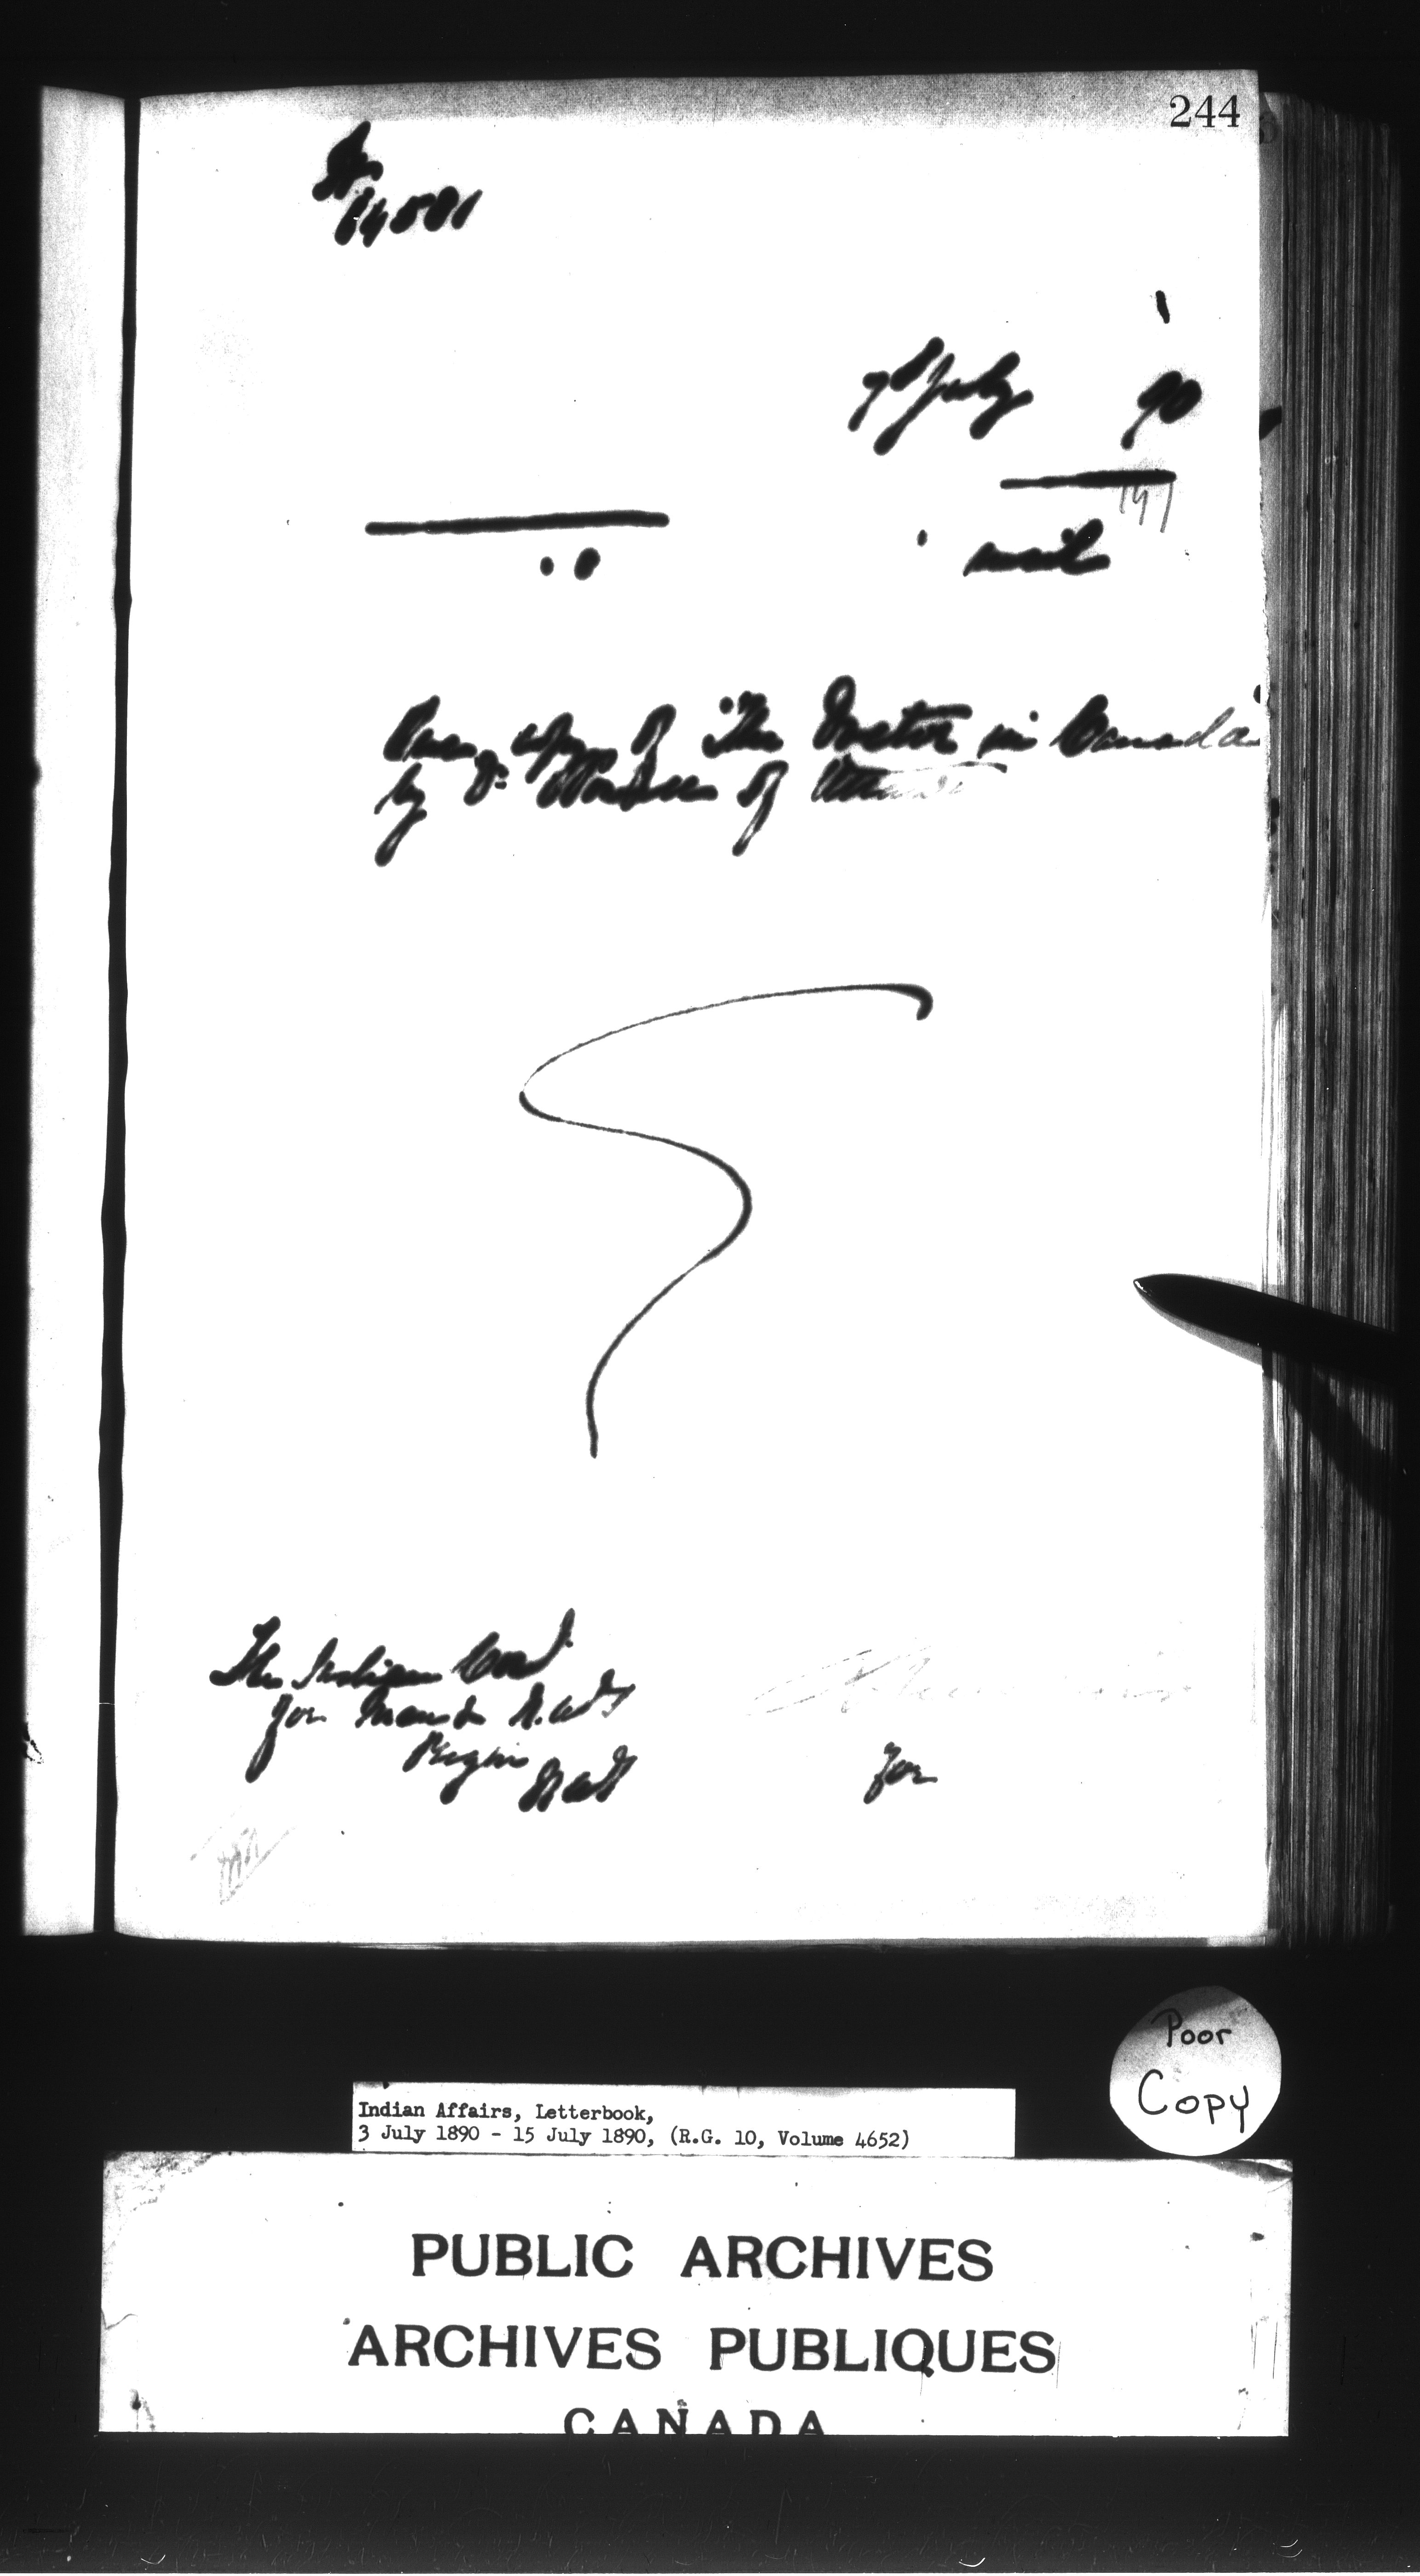 244
No
14501
7th July 90
191
mail
One copy of "The Doctor in Canada"
by Dr. of
The Indian Comr
for Man & N.W.T.
Regina
N.W.T.
for
Poor
Copy
Indian Affairs, Letterbook,
3 July 1890 - 15 July 1890, (R.G. 10, Volume 4652)
PUBLIC ARCHIVES
ARCHIVES PUBLIQUES
CANADA